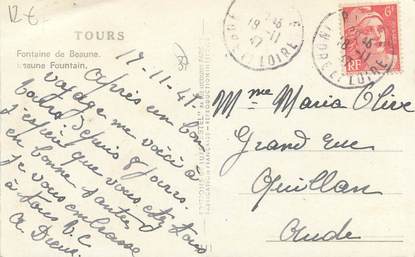 12 €
TOURS
Fontaine de Beaune.
Beaune Fountain.
17.11.47
Après un bon
voyage me voici à
Tours depuis 8 jours.
J'espère que vous êtes tous
en bonne santé
je vous embrasse
à tous B.C.
Mme Maria Olive
Grand rue
Quillan
Aude
TOURS
INDRE ET LOIRE
18
11
47
INDRE ET LOIRE
6F
RF